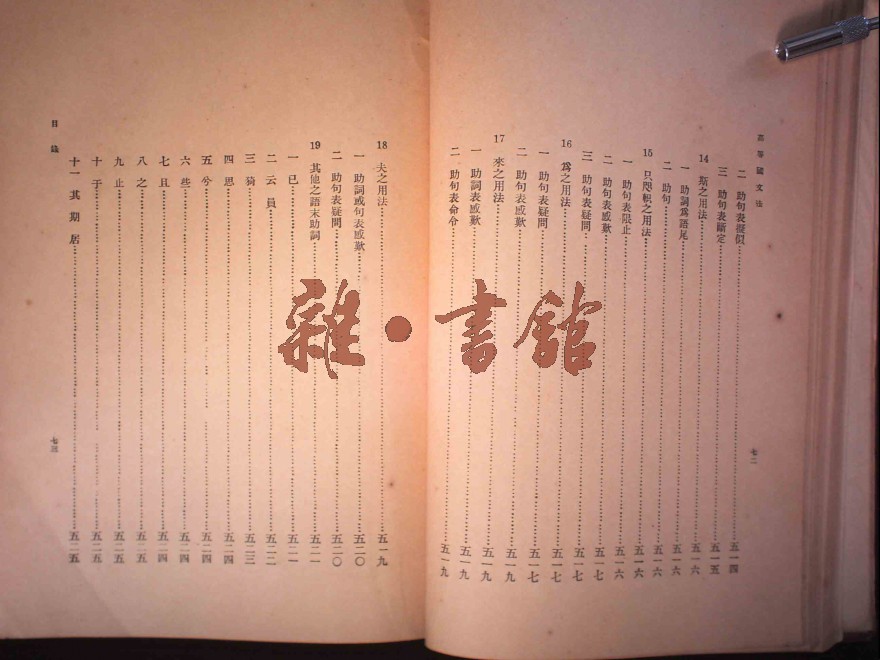 高等國文法
二 助句表擬似……五一四
三 助句表斷定……五一五
14 斯之用法……五一六
一 助詞爲語尾……五一六
二 助句……五一六
15 只咫軹之用法……五一六
一 助句表限止……五一六
二 助句表感歎……五一七
三 助句表疑問……五一七
16 爲之用法……五一七
一 助句表疑問……五一七
二 助句表感歎……五一九
17 來之用法……五一九
一 助詞表感歎……五一九
二 助句表命令……五一九
七二
目錄
18 夫之用法……五一九
一 助詞或句表感歎……五二〇
二 助句表疑問……五二〇
19 其他之語末助詞……五二一
一 已……五二一
二 云 員……五二二
三 猗……五二三
四 思……五二四
五 兮……五二四
六 些……五二四
七 且……五二四
八 之……五二五
九 止……五二五
十 于……五二五
十一 其 期 居……五二五
七三
雜·書館